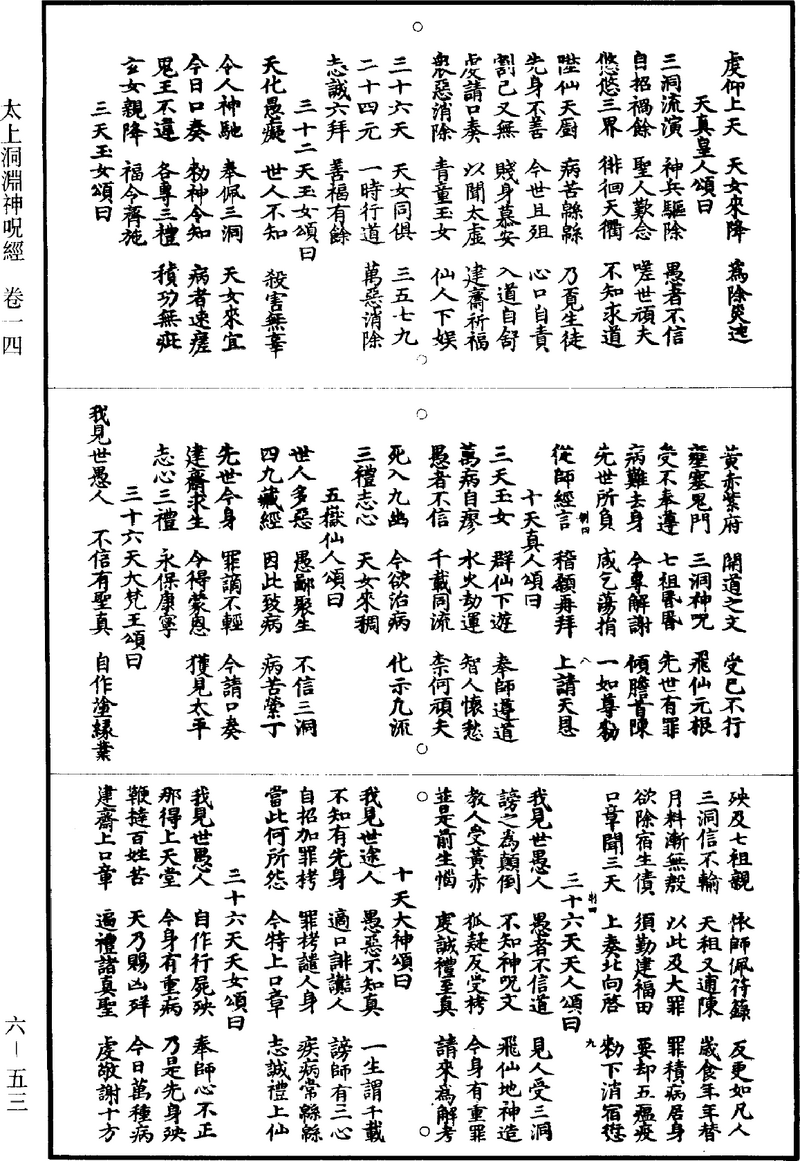 太上洞淵神呪經 卷一四
六－五三
虔仰上天 天女來降 為除災迍
天真皇人頌曰
三洞流演 神兵驅除 愚者不信
自招禍餘 聖人歎念 嗟世頑夫
悠悠三界 徘徊天衢 不知求道
陞仙天厨 病苦緜緜 乃覔生徒
先身不善 今世且殂 心口自責
割己又無 賤身慕安 入道自舒
虔請口奏 以聞太虛 建齋祈福
衆惡消除 青童玉女 仙人下娱
三十六天 天女同俱 三五七九
二十四元 一時行道 萬惡消除
志誠六拜 善福有餘
三十二天玉女頌曰
天化愚癡 世人不知 殺害無辜
令人神馳 奉佩三洞 天女來宜
今日口奏 勑神令知 病者速瘥
鬼王不違 各專三禮 積功無疵
玄女親降 福令齊施
三天玉女頌曰
黃赤紫府 開道之文 受已不行
壅塞鬼門 三洞神呪 飛仙元根
受不奉遵 七祖昬昬 先世有罪
病難去身 今專解謝 傾膽首陳
先世所負 咸乞蕩捐 一如尊勑
從師經言 稽顙再拜 上請天恩
十天真人頌曰
三天玉女 群仙下遊 奉師遵道
萬病自廖 水火劫運 智人懷愁
愚者不信 千載同流 柰何頑夫
死入九幽 今欲治病 化示九流
三禮志心 天女來稠
五嶽仙人頌曰
世人多惡 愚鄙聚生 不信三洞
四九藏經 因此致病 病苦縈丁
先世今身 罪謫不輕 今請口奏
建齋求生 今得蒙恩 獲見太平
志心三禮 永保康寧
三十六天大梵王頌曰
我見世愚人 不信有聖真 自作塗緣業
殃及七祖親 休師佩符籙 反更如凡人
三洞信不輸 天祖又逋陳 歲食年年替
月料漸無殽 以此及大罪 罪積病居身
欲除宿生債 須勤建福田 要却五瘟疫
口章聞三天 上奏北向啓 勑下消宿愆
三十六天天人頌曰
我見世愚人 愚者不信道 見人受三洞
謗之為顛倒 不知神呪文 飛仙地神造
教人受黃赤 狐疑反受栲 今身有重罪
並是前生惱 虔誠禮至真 請來為解考
十天大神頌曰
我見世途人 愚惡不知真 一生謂千載
不知有先身 適口誹讟人 謗師有三心
自招加罪栲 罪栲譴人身 疾病常緜緜
當此何所怨 今特上口章 志誠禮上仙
三十六天天女頌曰
我見世愚人 自作行屍殃 奉師心不正
那得上天堂 今身有重病 乃是先身殃
鞭撻百姓苦 天乃賜凶殍 今日萬種病
建齋上口章 遍禮諸真聖 虔敬謝十方